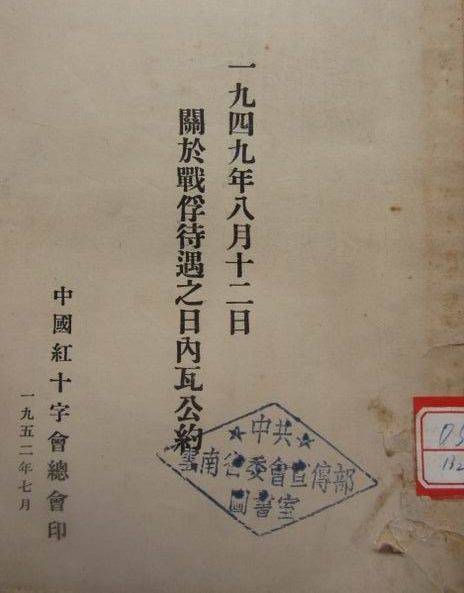 一九四九年八月十二日
關於戰俘待遇之日內瓦公約
中國紅十字會總會印
一九五二年七月
中共
雲南省委會宣傳部
圖書室